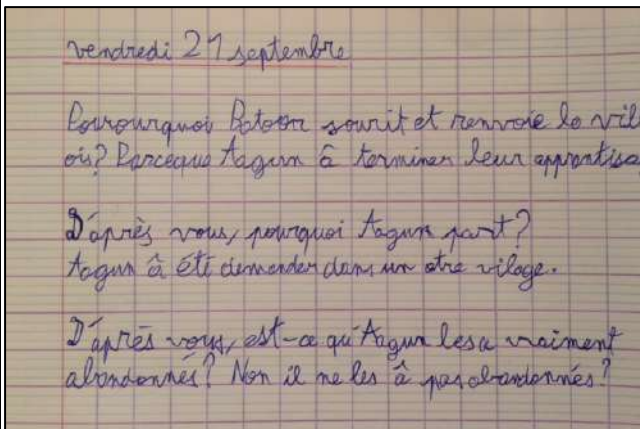 vendredi 21 septembre
Pourourquoi Batoor sourit et renvoie le vil
ois? Parceque Aagun à terminer leur apprentisa
D'après vous, pourquoi Aagun part?
Aagun à été demander dans un otre vilage.
D'après vous, est-ce qu'Aagun les a vraiment
abandonnés? Non il ne les à pas abandonnés?